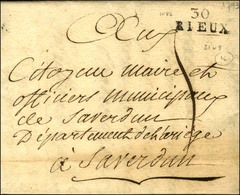 30
RIEUX
Aux
Citoyens maire et
officiers municipaux
de Saverdun
Département de l'ariege
à Saverdun